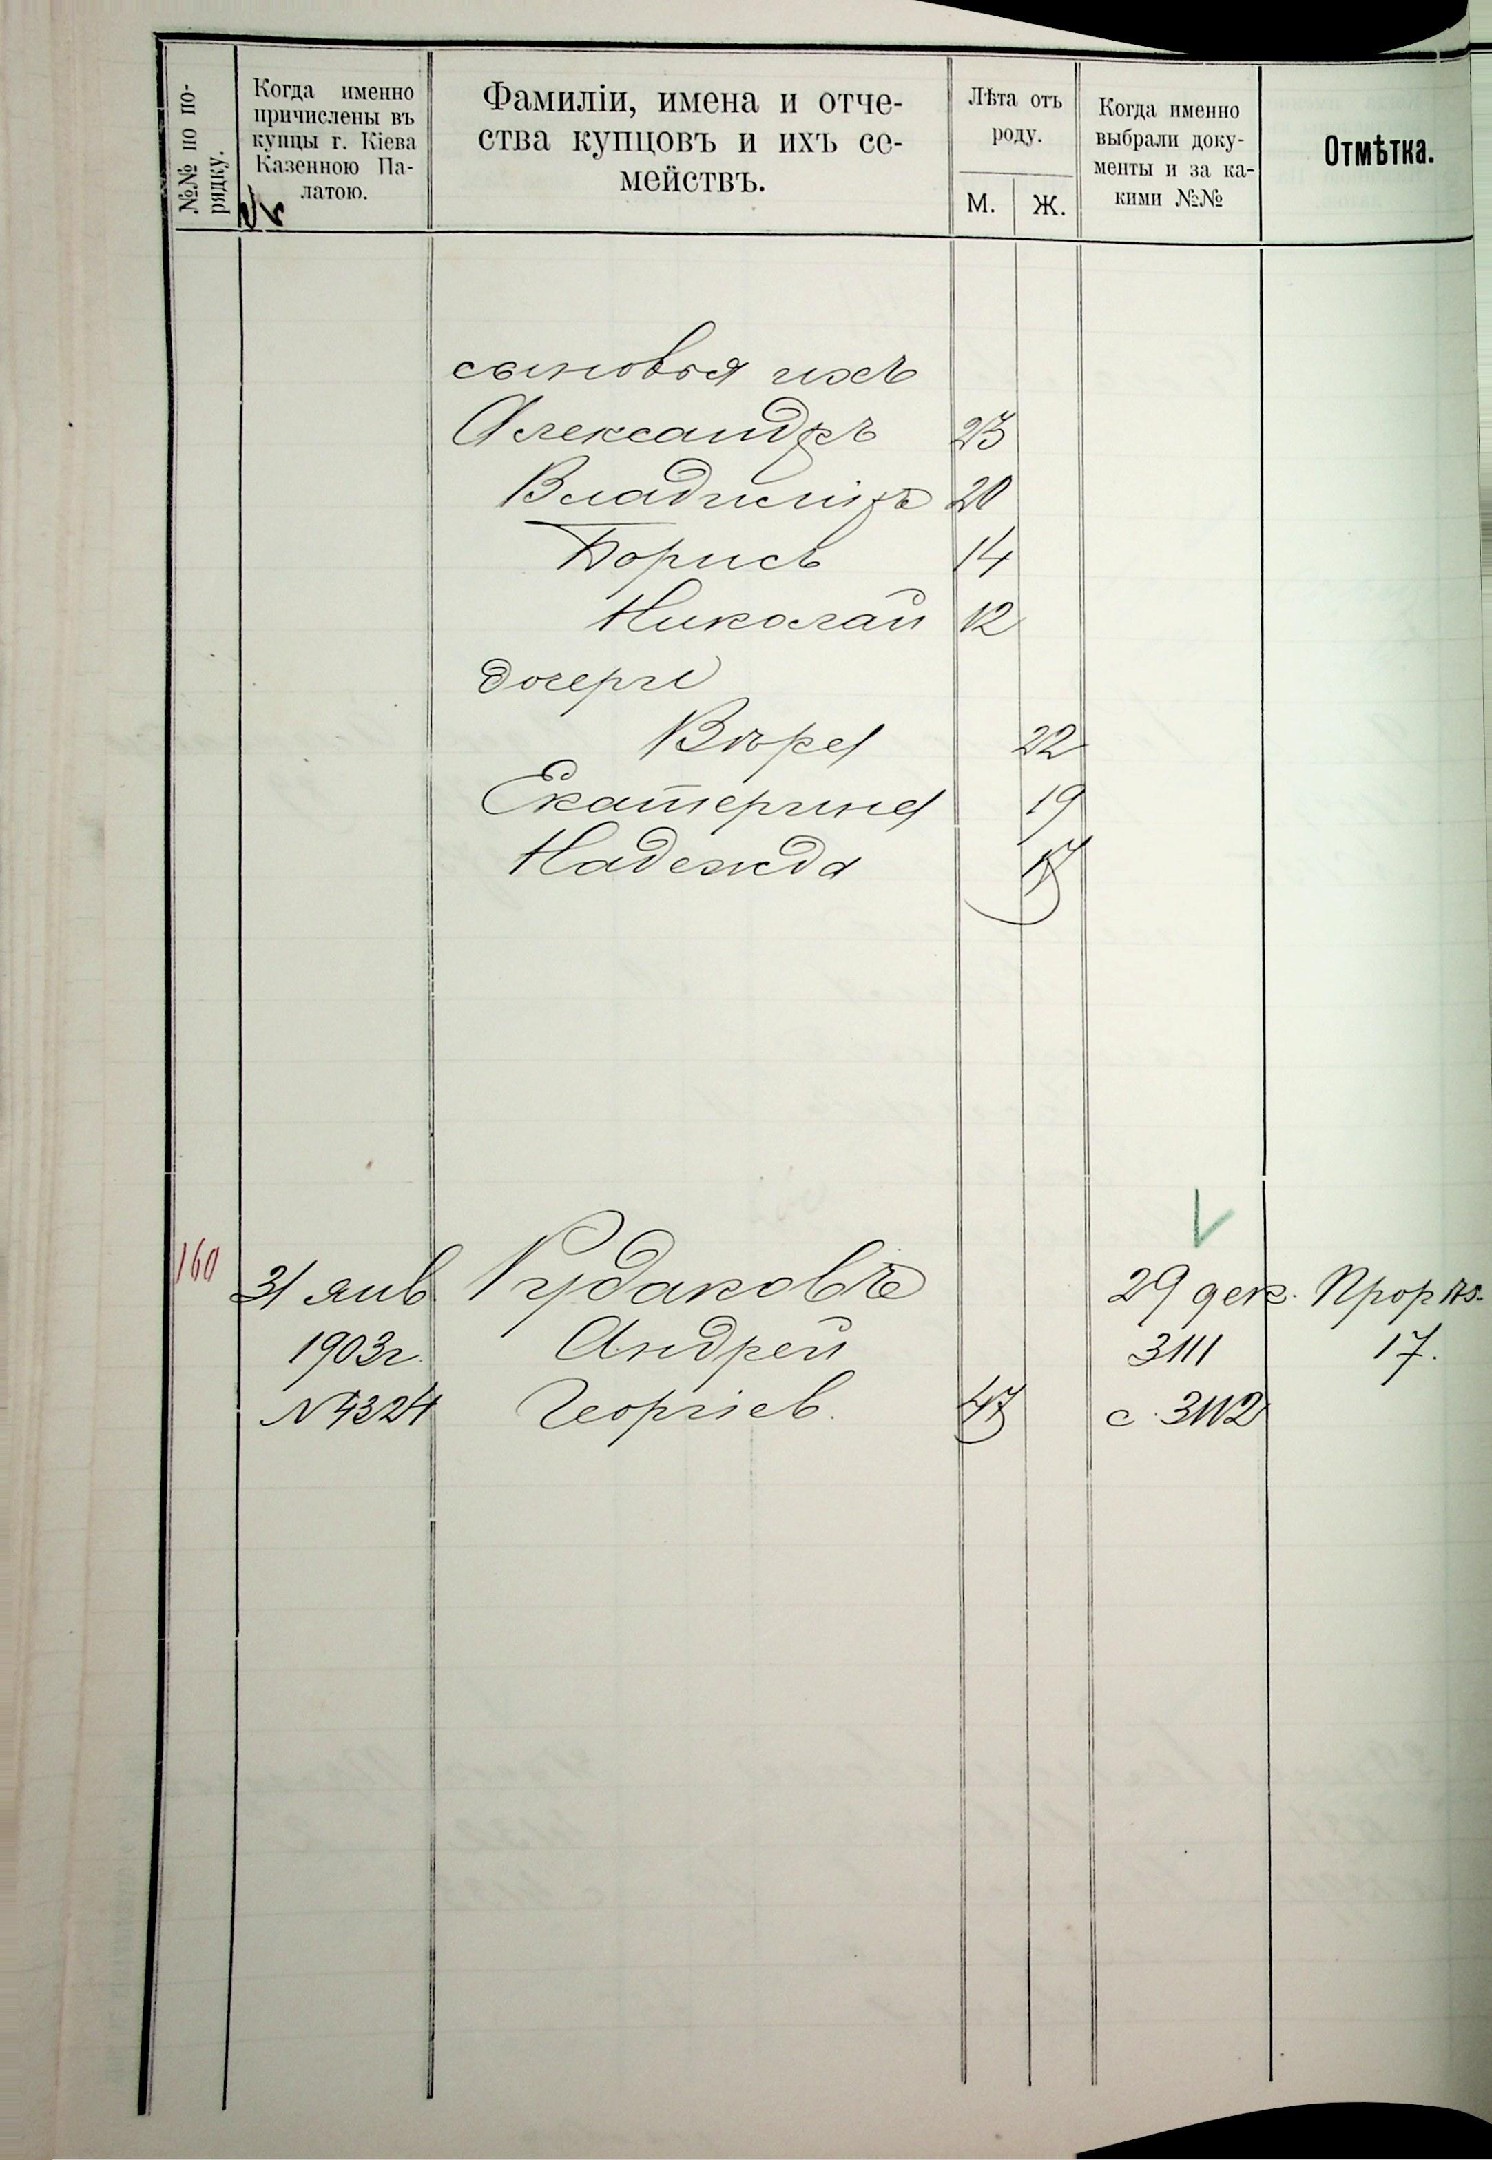 №№ по по-
рядку.
Когда именно
причислены въ
купцы г. Кіева
Казенною Па-
латою.
Фамиліи, имена и отче-
ства купцовъ и ихъ се-
мействъ.
Лѣта отъ
роду.
М. Ж.
Когда именно
выбрали доку-
менты и за ка-
кими №№
Отмѣтка.
сыновья ихъ
Александръ 23
Владиміръ 20
Борисъ 14
Николай 12
дочери
Вѣра 22
Екатерина 19
Надежда 17
160 31 янв. Рудаковъ 29 дек. Прорѣз.
1903г. Андрей 3111 17.
N4324 Георгіев. 47 с. 3112